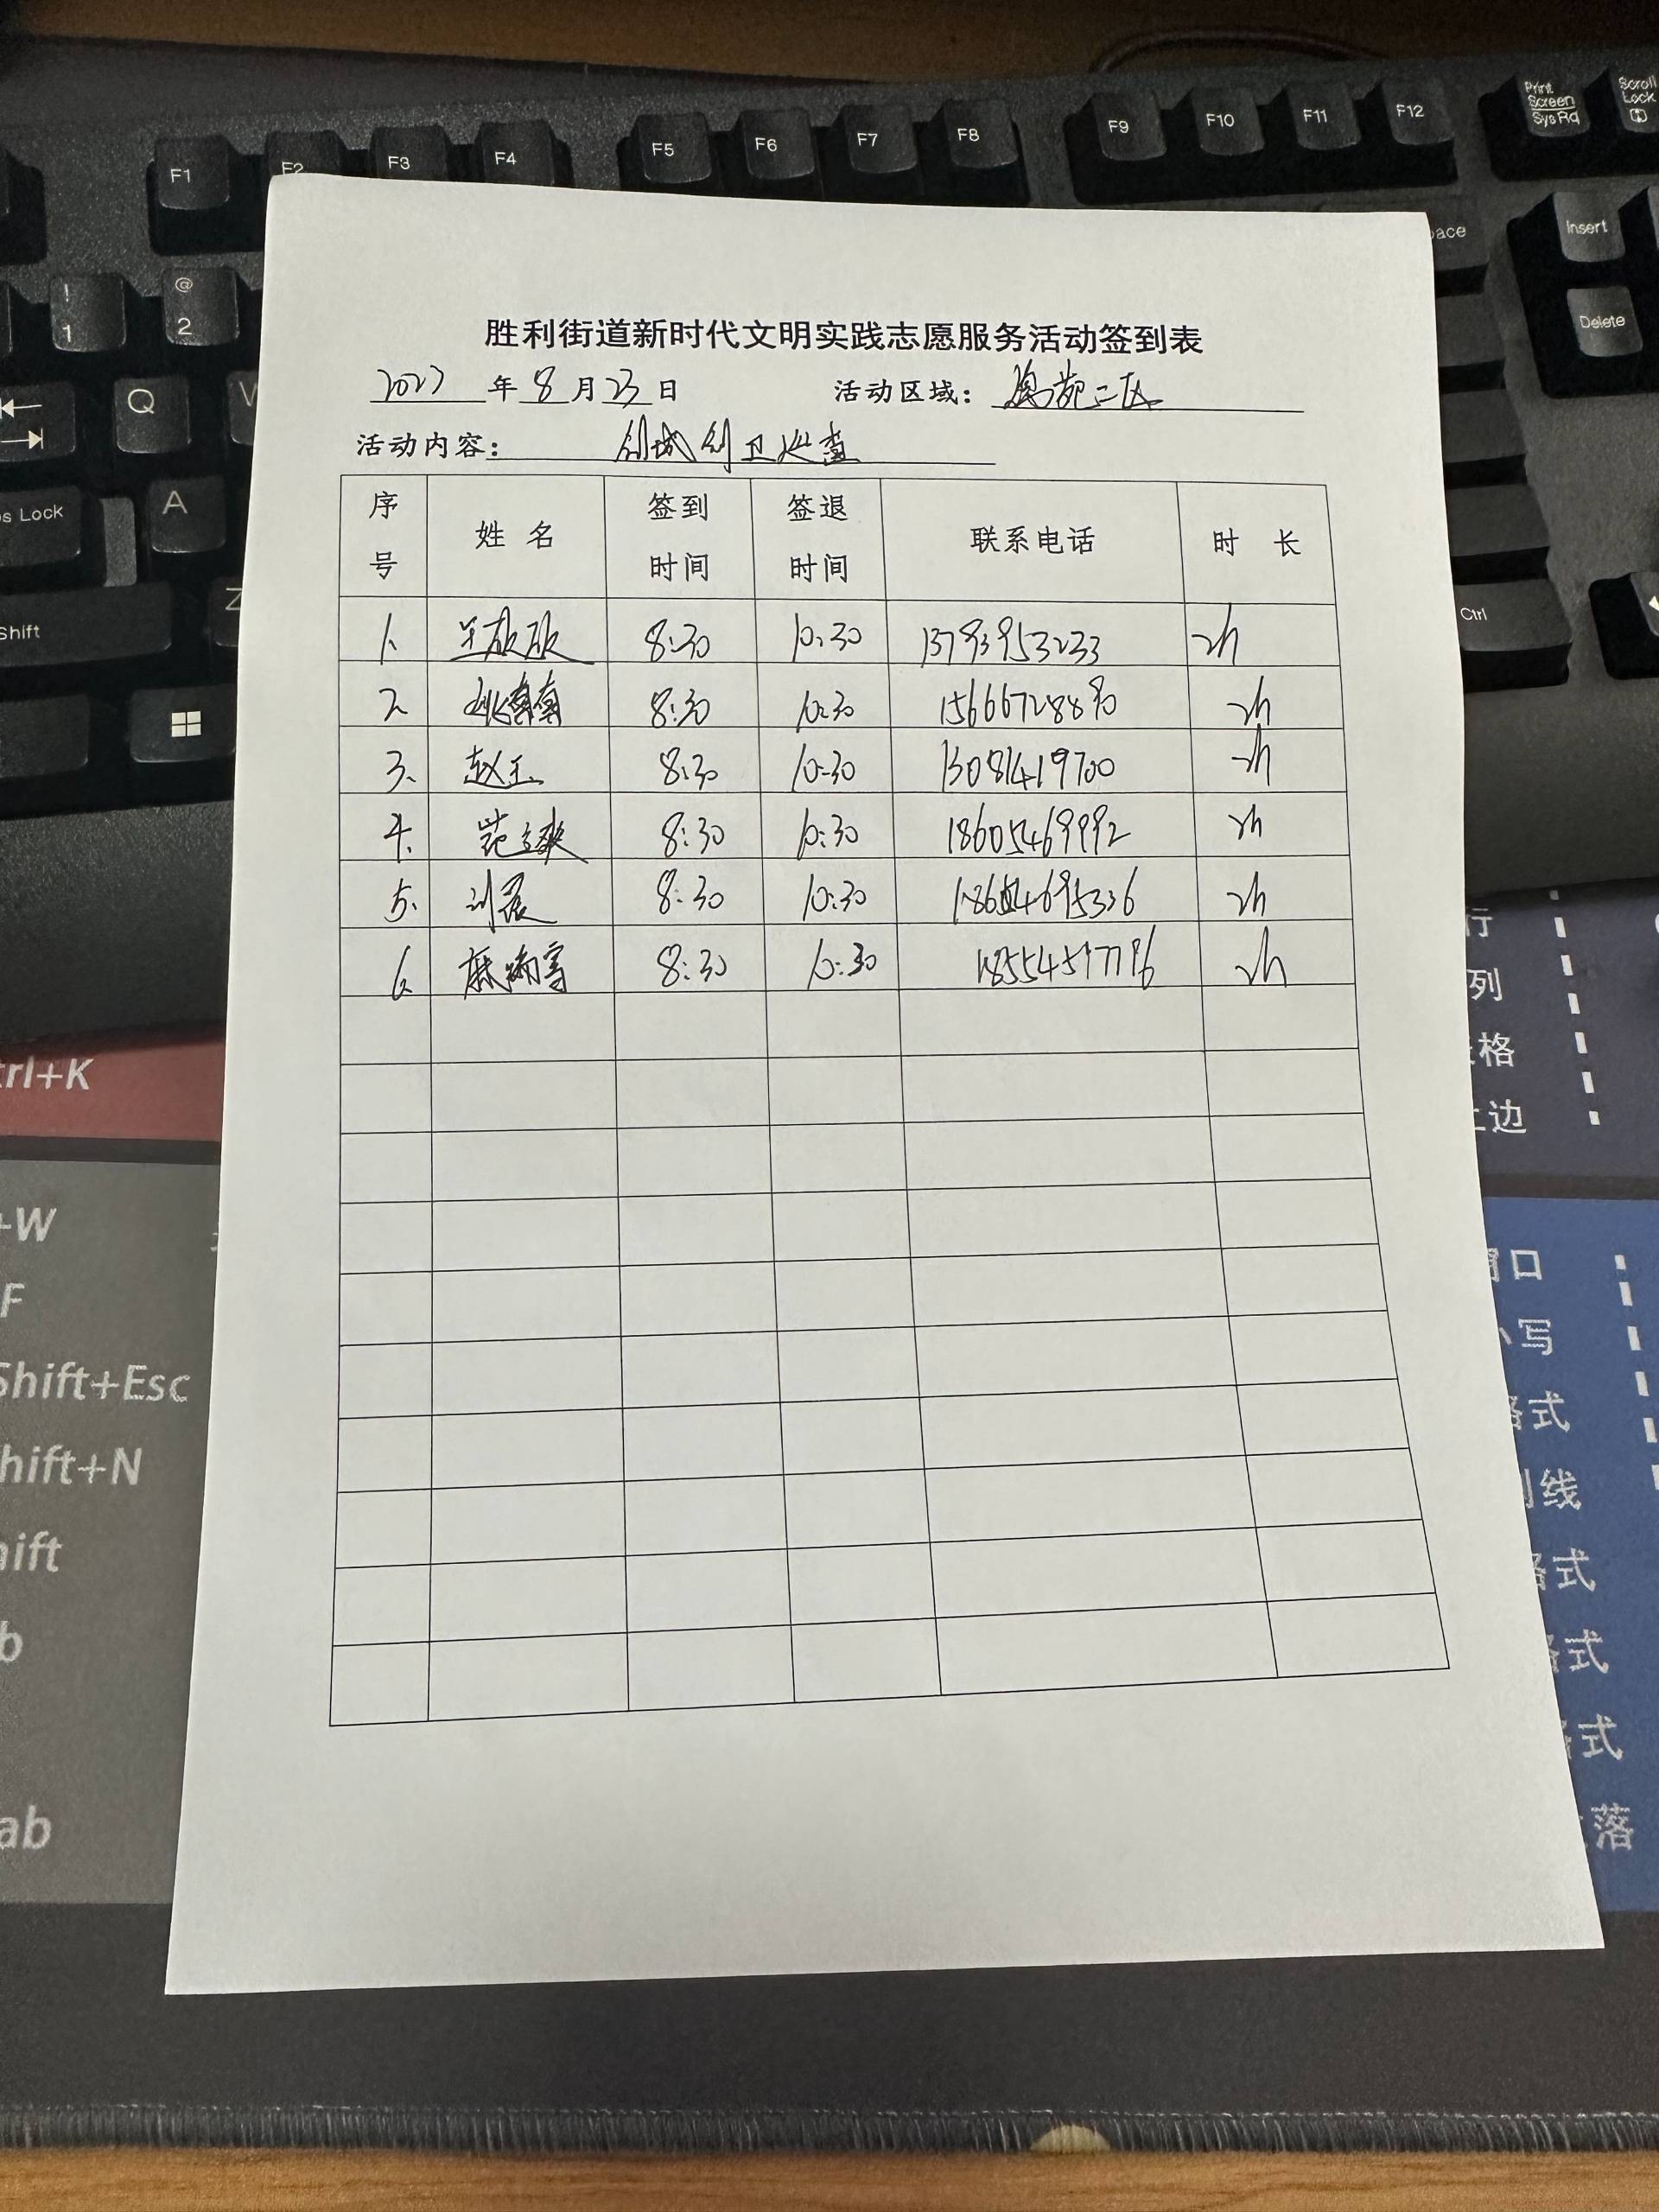 F1 F2 F3 F4 F5 F6 F7 F8 F9 F10 F11 F12 Print Screen SysRq Scroll Lock
! 1 @ 2 Insert
Q Delete
A
Shift Ctrl
胜利街道新时代文明实践志愿服务活动签到表
2023年8月23日 活动区域: 二区
活动内容: 创城创卫巡查
序号 姓名 签到时间 签退时间 联系电话 时长
1. 8:30 10:30 13793953233 2h
2 8:30 10:30 15666728890 2h
3. 赵玉 8:30 10:30 13081419700 2h
4. 范立爽 8:30 10:30 18605469992 2h
5. 刘晨 8:30 10:30 2h
6. 8:30 10:30 2h
行
列
格
边
trl+K
+W
F
Shift+Esc
hift+N
hift
b
ab
窗口
小写
格式
线
格式
格式
格式
落